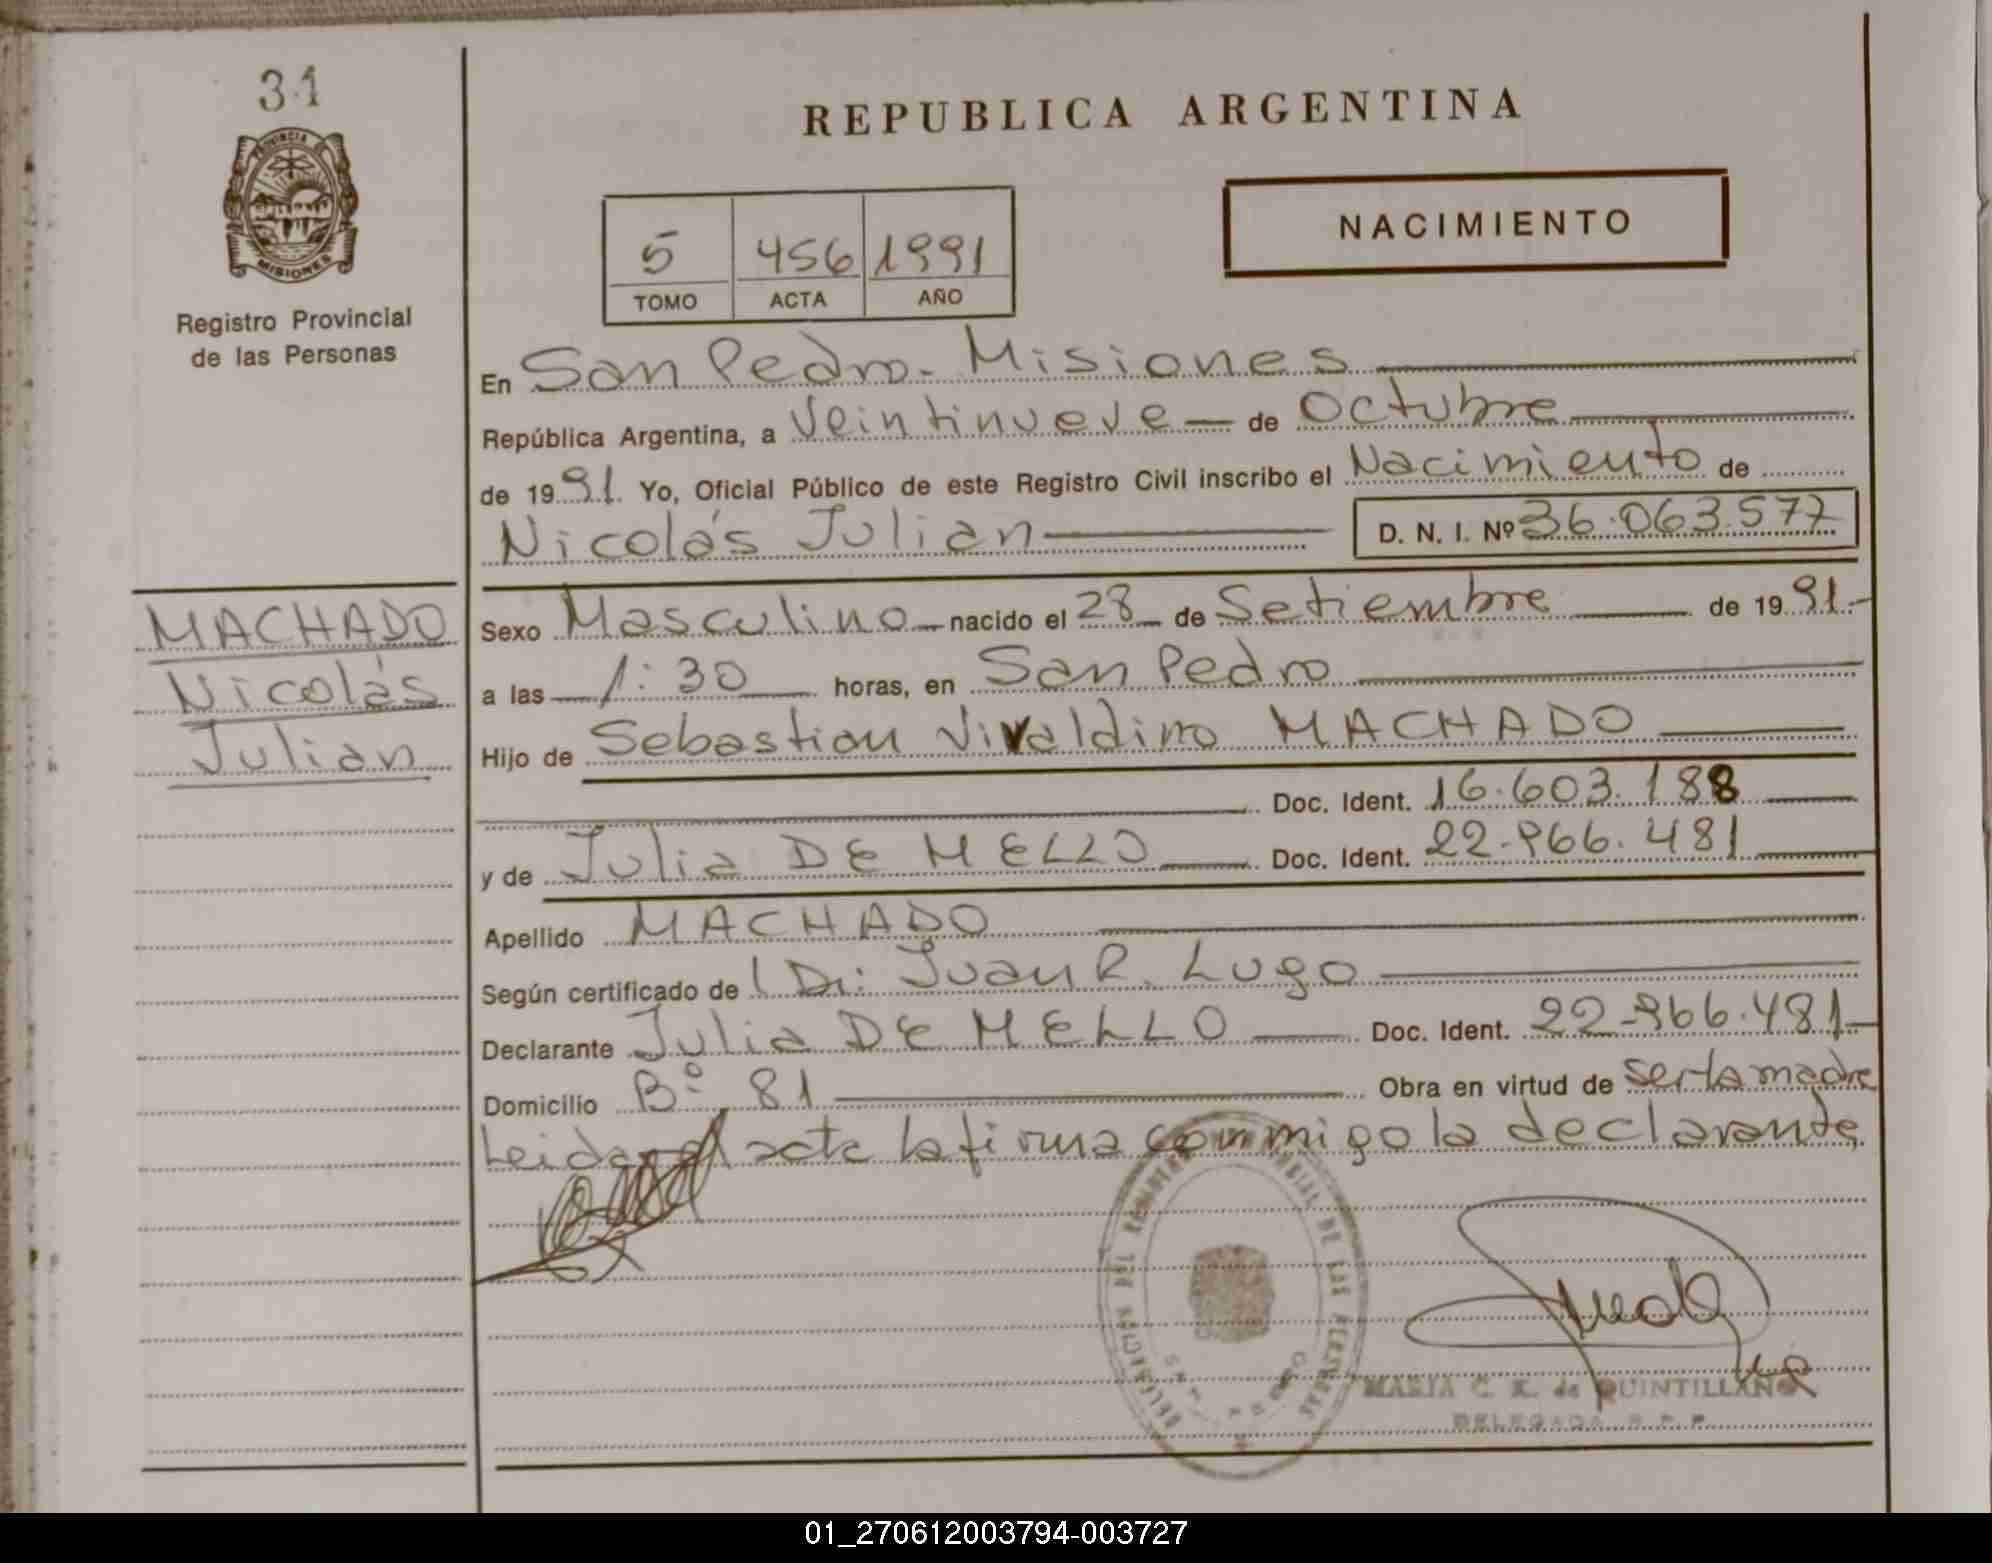 31
PROVINCIA DE
MISIONES
Registro Provincial
de las Personas
MACHADO
Nicolás
Julian
REPUBLICA ARGENTINA
NACIMIENTO
5 456 1991
TOMO ACTA AÑO
En San Pedro - Misiones
República Argentina, a Veintinueve de Octubre
de 1991. Yo, Oficial Público de este Registro Civil inscribo el Nacimiento de
Nicolás Julian D. N. I. Nº 36.063.577
Sexo Masculino nacido el 28 de Setiembre de 1991.-
a las 1:30 horas, en San Pedro
Hijo de Sebastian Vivaldino MACHADO
Doc. Ident. 16.603.188
y de Julia DE MELLO Doc. Ident. 22.966.481
Apellido MACHADO
Según certificado de Dr. Juan R. Lugo
Declarante Julia DE MELLO Doc. Ident. 22.966.481
Domicilio Bº 81 Obra en virtud de ser la madre
Leida el acta la firma conmigo la declarante
DELEGACION DEL REGISTRO PROVINCIAL DE LAS PERSONAS
SAN PEDRO
MARIA C. K. de QUINTILLANO
DELEGADA R. P. P.
01_270612003794-003727